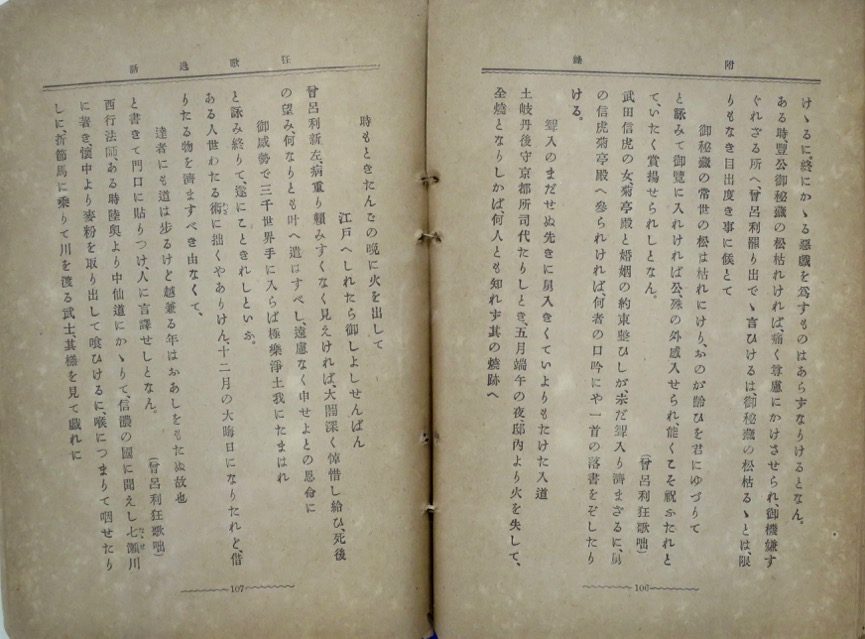 附錄
けゝるに、終にかゝる惡戲を爲すものはあらずなりけるとなん。
ある時豐公御秘藏の松枯れければ、痛く尊慮にかけさせられ、御機嫌す
ぐれざる所へ、曾呂利罷り出でゝ言ひけるは、御秘藏の松枯るゝとは、限
りもなき目出度き事に候とて
御秘藏の常世の松は枯れにけりおのが齡ひを君にゆづりて
と詠みて御覽に入れければ公、殊の外感入せられ、能くこそ祝ふたれと
て、いたく賞揚せられしとなん。
（曾呂利狂歌咄）
武田信虎の女、菊亭殿と婚姻の約束整ひしが、未だ聟入り濟まざるに、舅
の信虎菊亭殿へ參られければ、何者の口吟にや一首の落書をぞしたり
ける。
聟入のまだせぬ先きに舅入きくていよりもたけた入道
土岐丹後守京都所司代たりしとき、五月端午の夜、邸內より火を失して、
全燒となりしかば何人とも知れず其の燒跡へ
106
狂歌逸話
時もときたんごの晚に火を出して
江戶へしれたら御しよしせんばん
曾呂利新左、病重り賴みすくなく見えければ、太閤深く悼惜し給ひ、死後
の望み、何なりとも叶へ遣はすべし、遠慮なく申せよとの恩命に
御威勢で三千世界手に入らば極樂淨土我にたまはれ
と詠み終りて、遂にこときれしといふ。
ある人世わたる術に拙くやありけん、十二月の大晦日になりたれど、借
わざ
りたる物を濟ますべき由なくて、
達者にも道は步るけど越兼る年はおあしをもたぬ故也
と書きて門口に貼りつけ、人に言譯せしとなん。
（曾呂利狂歌咄）
西行法師、ある時陸奧より中仙道にかゝりて、信濃の國に聞えし七瀨川
たせ
に着き、懷中より麥粉を取り出して喰ひけるに、喉につまりて咽せたり
しに、折節馬に乘りて川を渡る武士、其樣を見て戲れに
107